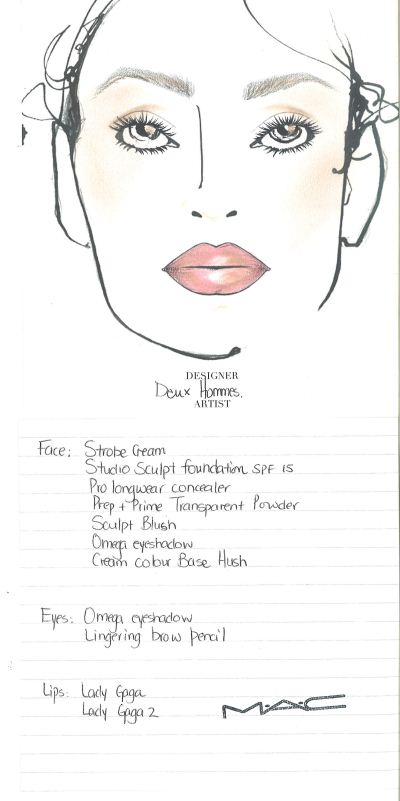 DESIGNER
Deux Hommes.
ARTIST
Face: Strobe Cream
Studio Sculpt foundation SPF 15
Pro longwear concealer
Prep + Prime Transparent Powder
Sculpt Blush
Omega eyeshadow
Cream colour Base Hush
Eyes: Omega eyeshadow
Lingering brow pencil
Lips: Lady Gaga
Lady Gaga 2
M·A·C